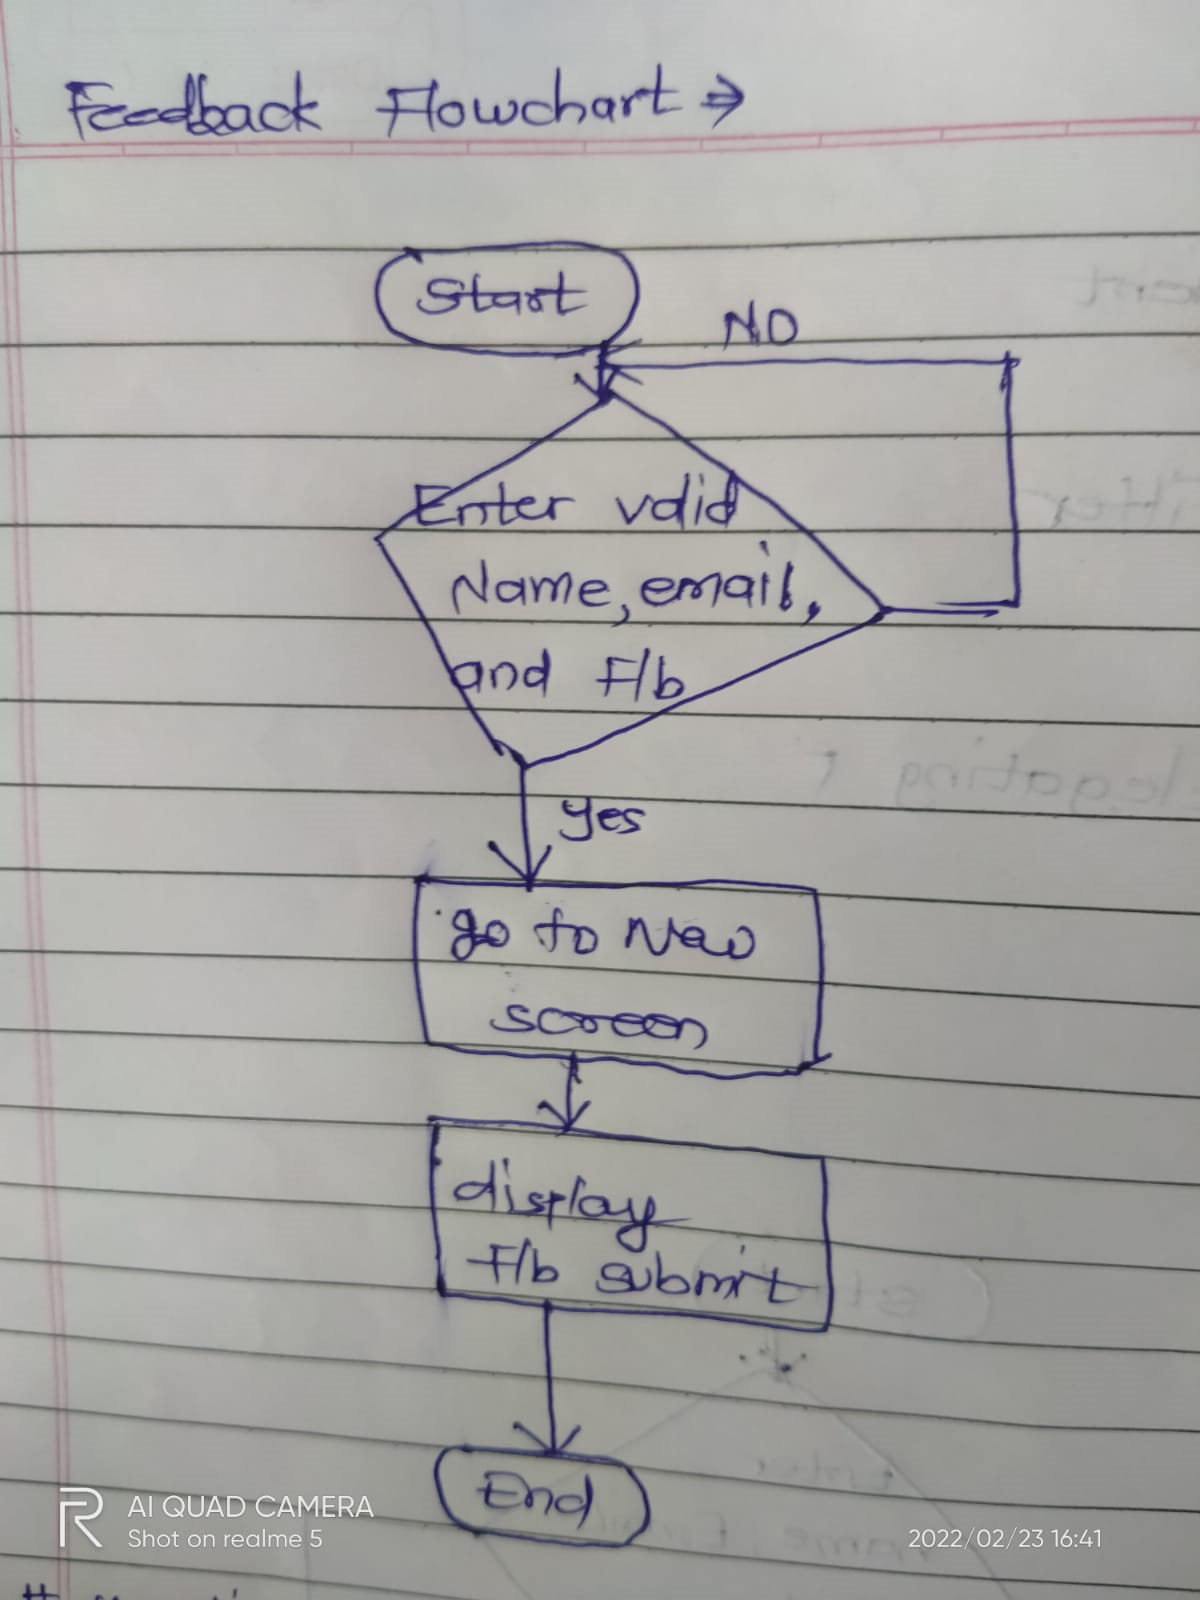 Feedback Flowchart →
Start
NO
Enter valid
Name, email,
and F/b
Yes
go to New
screen
display
F/b submit
End
AI QUAD CAMERA
Shot on realme 5
2022/02/23 16:41